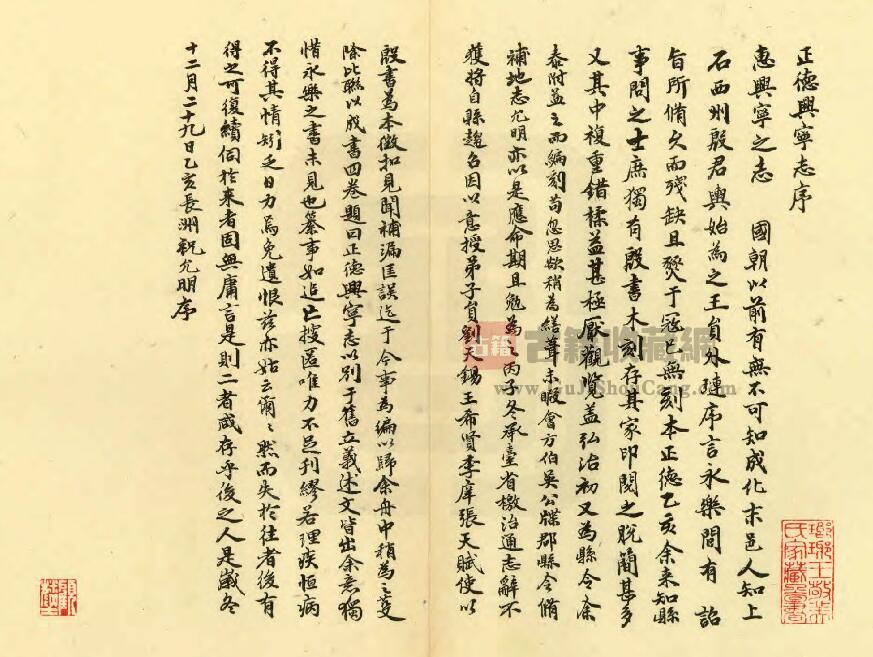 正德興寧志序
惠興寧之志　國朝以前有無不可知成化末邑人知上
石西州殷君輿始為之王員外璉序言永樂間有　詔
旨所俻欠而殘缺且燹于寇已無刻本正德乙亥余来知縣
事問之士庶獨有殷書木刻存其家印閱之脫簡甚多
又其中複重錯糅益甚極厭觀覽盖弘治初又為縣令
泰附益之而編刻苟忽思欲稍為繕葺未暇會方伯吳公牒郡縣令俻
補地志允明亦以是應命期且勉為之丙子冬承臺省檄治通志辭不
獲將自縣趨召因以意授弟子員劉天錫王希賢李庠張天賦使以
殷書為本徵扣見聞補漏匡誤迄于今事為編以歸余舟中稍為之芟
除比聯以成書四卷題曰正德興寧志以别于舊立義述文皆出余意獨
惜永樂之書未見也纂事如追亡搜匿唯力不足刋繆若理疾恒病
不得其情矧乏日力焉免遺恨兹亦姑云爾爾然而失於往者後有
得之可復續伺於来者固無庸言是則二者咸存乎後之人是歲冬
十二月二十九日乙亥長洲祝允明序
琅琊王敬美氏家藏圖書
古籍
古籍收藏網
www.GuJiShouCang.com